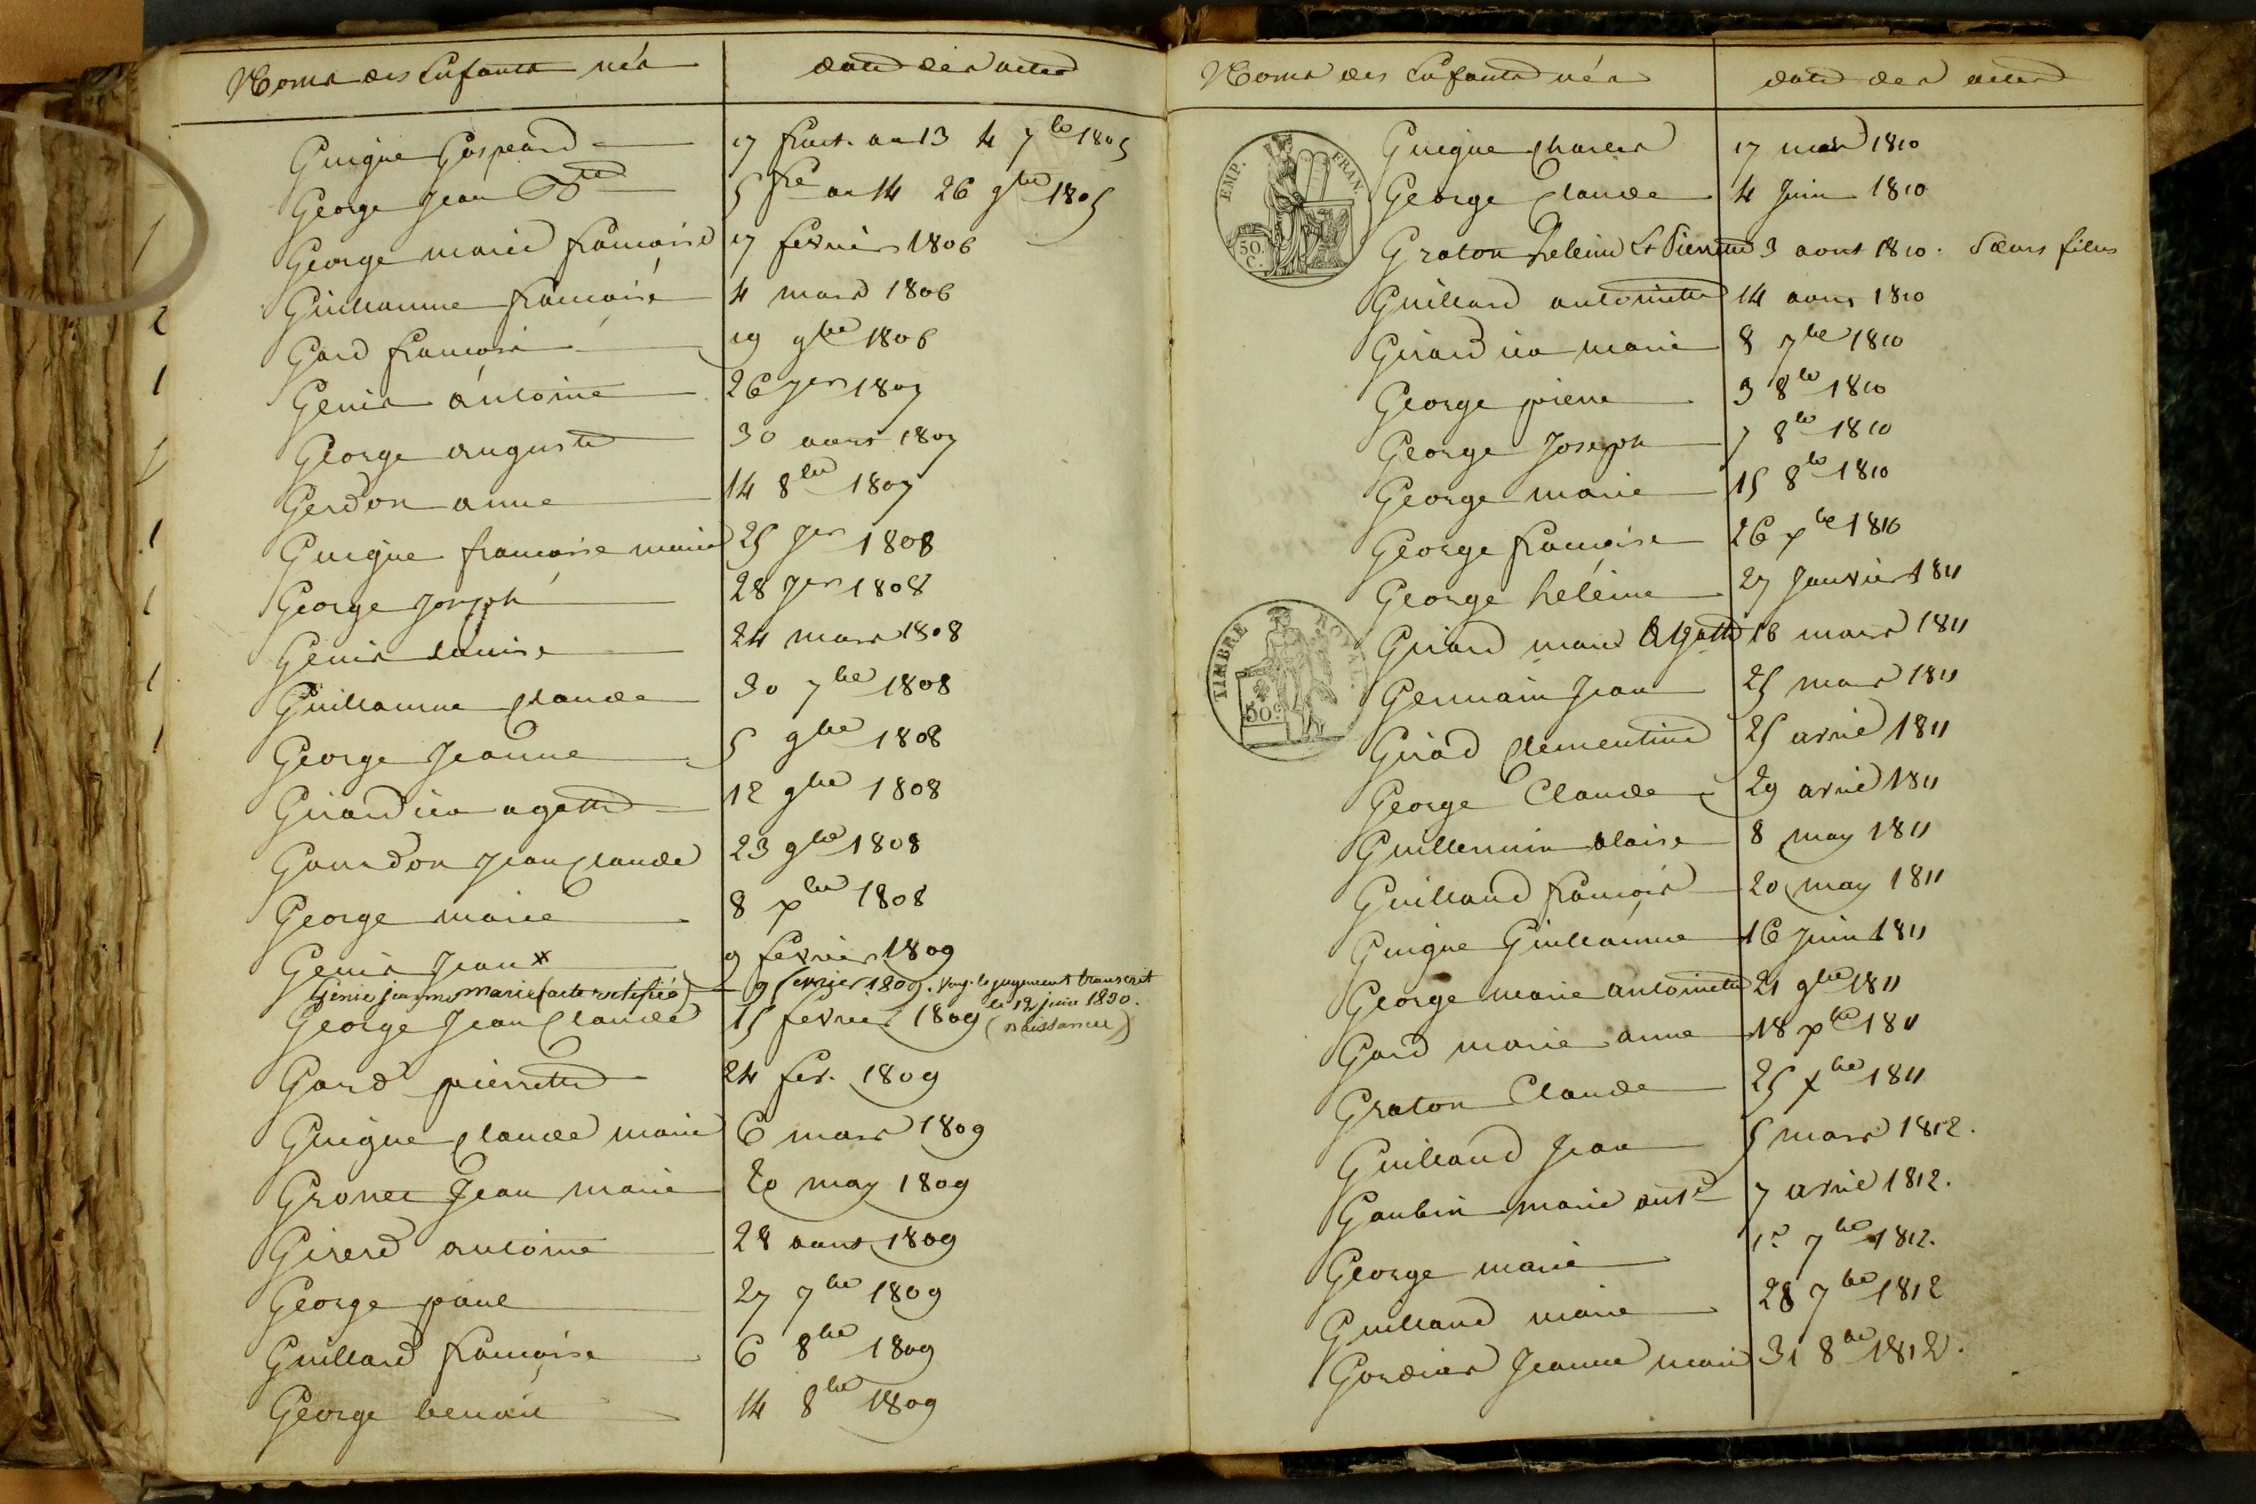 Noms des Enfants nés date des actes
Guigue Gaspard 17 fruct. an 13 4 7bre 1805
George Jean Bte 5 fre an 14 26 9bre 1805
George marie francoise 17 fevrier 1806
Guillaume francoise 4 mars 1806
Gard francois 19 9bre 1806
Genis antoine 26 Jer 1807
George auguste 30 aout 1807
Gerdon anne 14 8bre 1807
Guigue francoise marie 25 Jer 1808
George Joseph 28 Jer 1808
Genis Louise 24 mars 1808
Guillaume Claude 30 7bre 1808
George Jeanne 5 9bre 1808
Girardier agathe 12 9bre 1808
Gourdon Jean Claude 23 9bre 1808
George marie 8 xbre 1808
Genis Jean x 9 fevrier 1809
Genis jeanne marie (acte rectifié) 9 fevrier 1809. Voy. le jugement transcrit
le 12 juin 1830.
George Jean Claude 15 fevrier 1809 (naissance)
Gard pierrette 24 fev. 1809
Guigue Claude marie 6 mars 1809
Jean marie 20 may 1809
Girerd antoine 28 aout 1809
George paul 27 7bre 1809
Guillard francoise 6 8bre 1809
George benoit 14 8bre 1809
Noms des Enfants nés date des actes
Guigue Charles 17 mars 1810
EMP. FRAN.
50. C.
George Claude 4 Juin 1810
Graton heleine Et Pierrette 3 aout 1810.
Guillard antoinette 14 aout 1810
Girardier marie 8 7bre 1810
George pierre 3 8bre 1810
George Joseph 7 8bre 1810
George marie 15 8bre 1810
George francoise 26 xbre 1810
George heléine 27 Janvier 1811
TIMBRE ROYAL.
50c
Girard marie Agathe 16 mars 1811
Germain Jean 25 mars 1811
Girad Clementine 25 avril 1811
George Claude 29 avril 1811
Guillermin blaise 8 may 1811
Guilland francois 20 may 1811
Guigue Guillaume 16 Juin 1811
George marie antoinette 21 9bre 1811
Gard marie anne 18 xbre 1811
Graton Claude 25 xbre 1811
Guilland Jean 5 mars 1812.
Gaubin marie antte 7 avril 1812.
George marie 1er 7bre 1812.
Guilland marie 28 7bre 1812
Gordier Jeanne marie 31 8bre 1812.